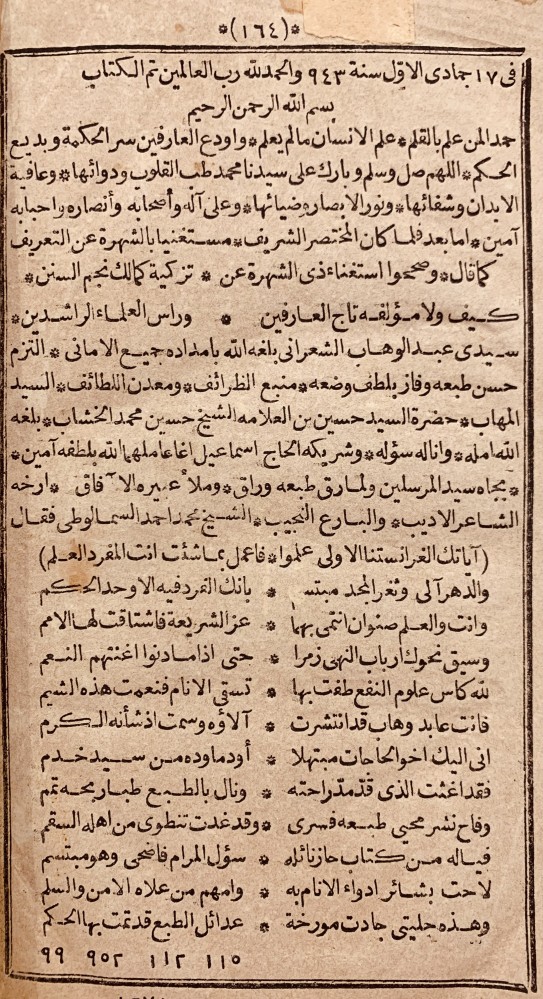 *(١٦٤)*
فى ١٧ جمادى الاوّل سنة ٩٤٣ والحمد لله رب العالمين تم الكتاب
بسم الله الرحمن الرحيم
حمد المن علم بالقلم * علم الانسان مالم يعلم * واودع العارفين سر الحكمة وبديع
الحكم * اللهم صل وسلم وبارك على سيدنا محمد طب القلوب ودوائها * وعافية
الابدان وشفائها * ونور الابصار وضيائها * وعلى آله وأصحابه وأنصاره واحبابه
آمين * اما بعد فلما كان المختصر الشريف * مستغنيا بالشهرة عن التعريف
كما قال * وصححوا استغناء ذى الشهرة عن * تزكية كمالك نجم السنن *
كيف ولا مؤلفه تاج العارفين * وراس العلماء الراشدين *
سيدى عبد الوهاب الشعرانى بلغه الله بامداده جميع الامانى * التزم
حسن طبعه وفاز بلطف وضعه * منبع الظرائف * ومعدن اللطائف * السيد
المهاب * حضرة السيد حسين بن العلامه الشيخ حسين محمد الخشاب * بلغه
الله امله * واناله سؤله * وشريكه الحاج اسماعيل اغا عاملهما الله بلطفه آمين *
* بجاه سيد المرسلين ولما رق طبعه وراق * وملأ عبيره الآفاق * ارخه
الشاعر الاديب * والبارع النجيب * الشيخ محمد احمد السمالوطى فقال
(آياتك الغر انستنا الاولى علموا * فاعمل بما شئت انت المفرد العلم)
والدهر آلى وثغر المجد مبتسم * بانك الفرد فيه الاوحد الحكم
وانت والعلم صنوان انتمى بهما * عز الشريعة فاشتاقت لها الامم
وسيق نحوك ارباب النهى زمرا * حتى اذا ما دنوا اغنتهم النعم
لله كاس علوم النفع طفت بها * تسقى الانام فنعمت هذه الشيم
فانت عابد وهاب قد انتشرت * آلاؤه وسمت اذ شأنه الكرم
انى اليك اخو الحاجات مبتهلا * أود ماوده من سيد خدم
فقد اغثت الذى قد مدّ راحته * ونال بالطبع طبا ربحه تمم
وفاح نشر محيى طبعه فسرى * وقد غدت تنطوى من اهله السقم
فياله من كتاب حاز نائله * سؤل المرام فاضحى وهو مبتسم
لاحت بشائر ادواء الانام به * وامهم من علاه الامن والسلم
وهذه حليتى جادت مورخة * عدائل الطبع قد تمت بها الحكم
١١٥ ١١٢ ٩٥٢ ٩٩